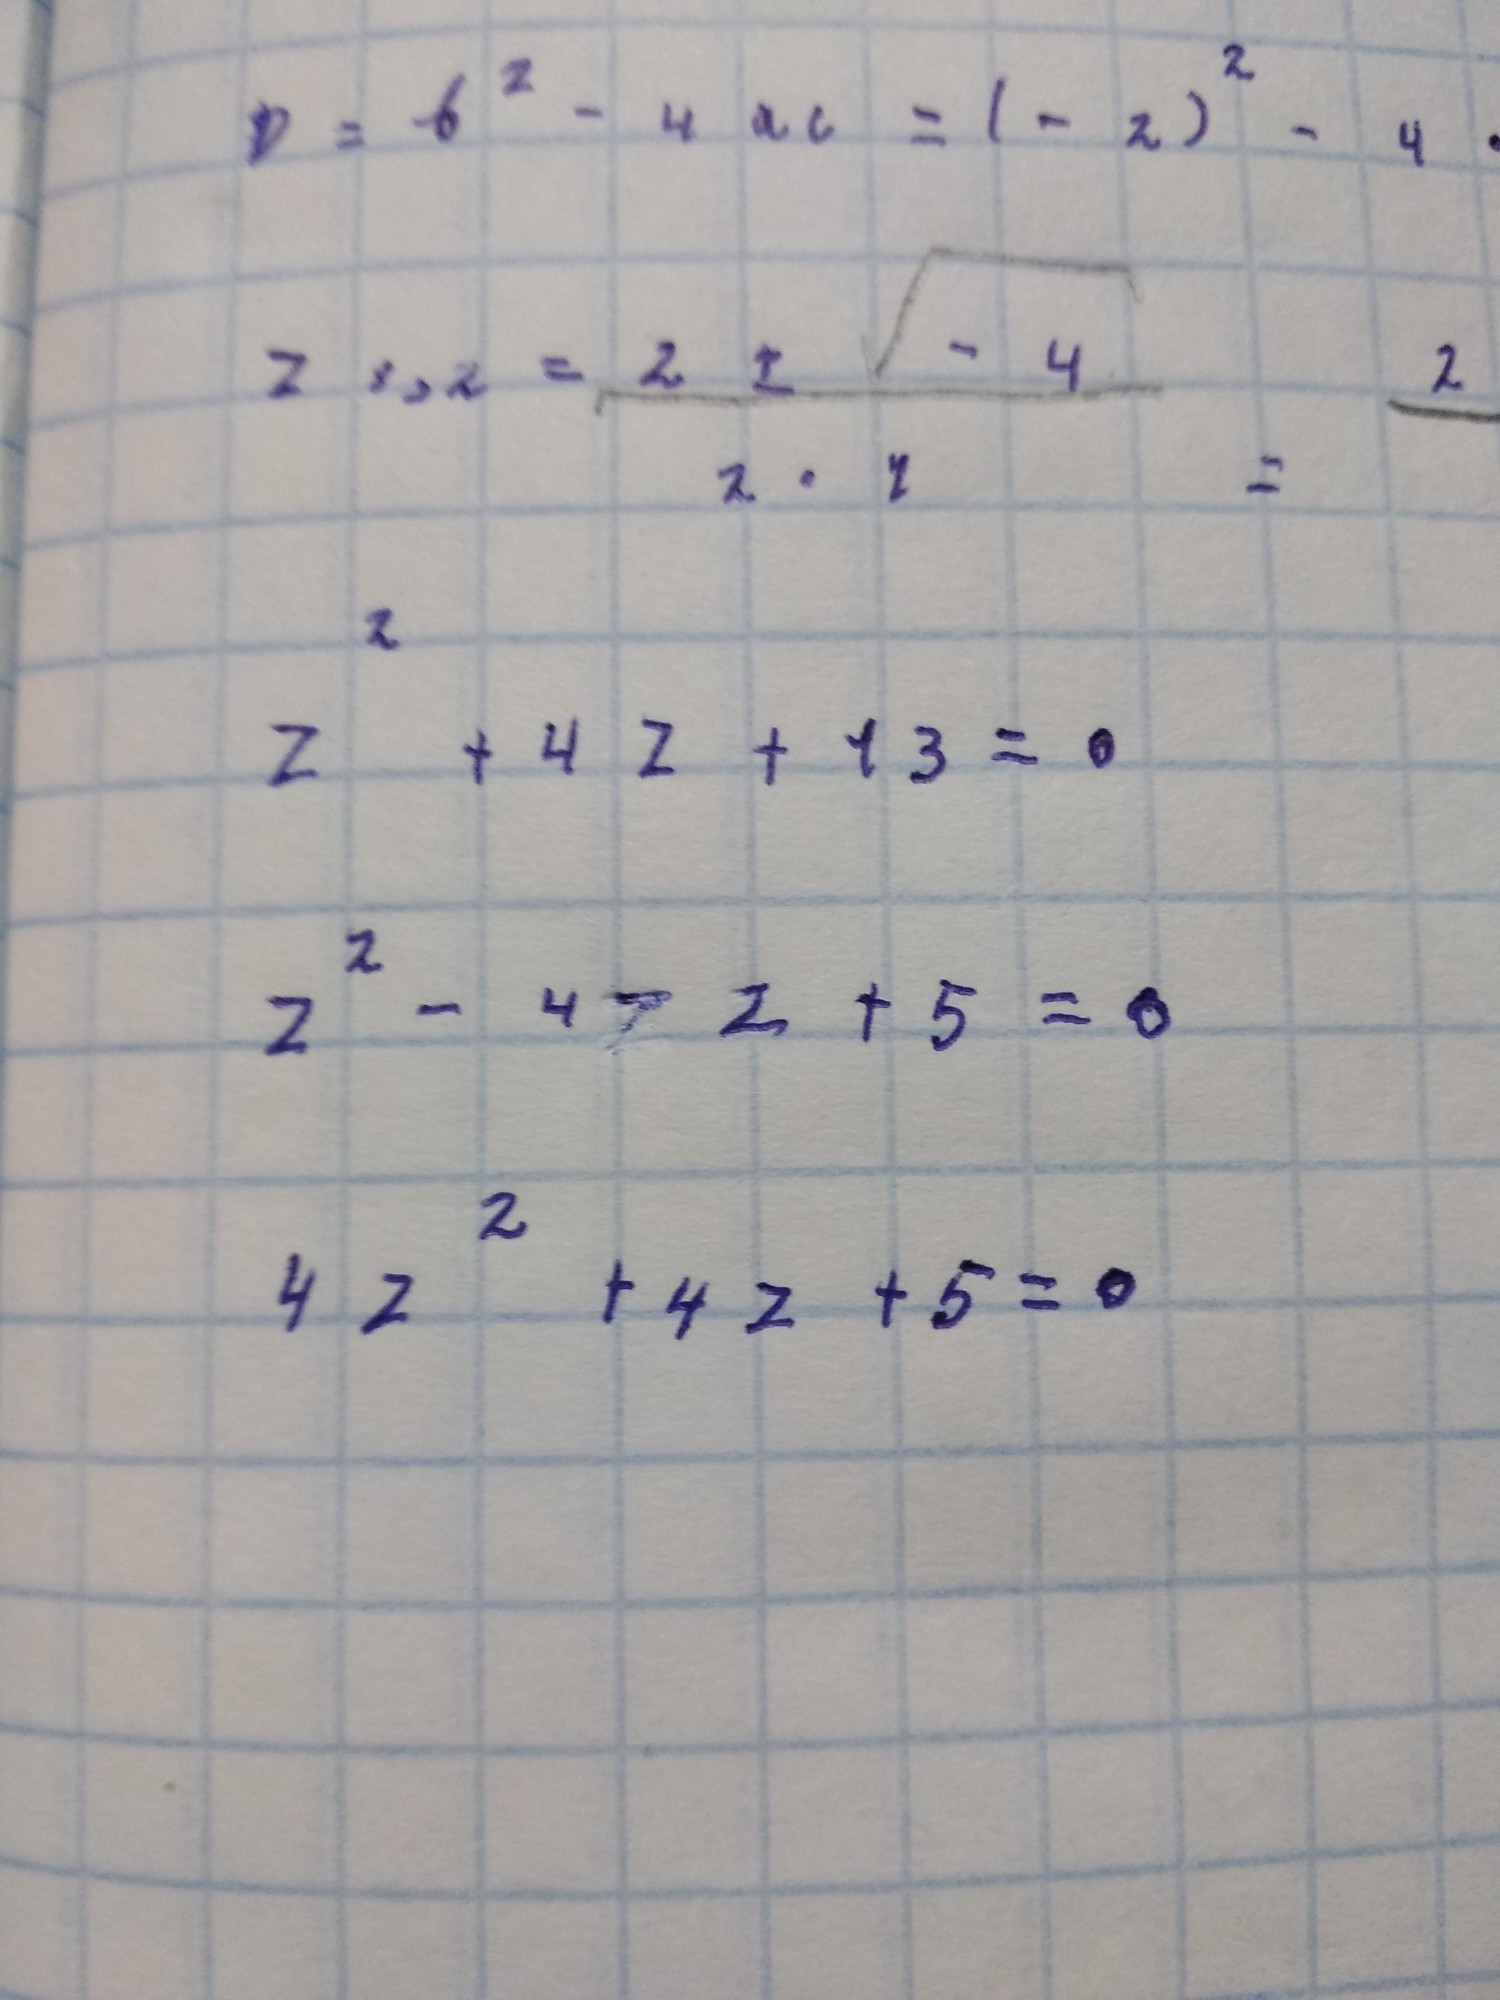 D = b² - 4ac = (-2)² - 4 ·
z₁,₂ = (2 ± √-4) / (2 · 1) = 2
z² + 4z + 13 = 0
z² - 4 z + 5 = 0
4z² + 4z + 5 = 0